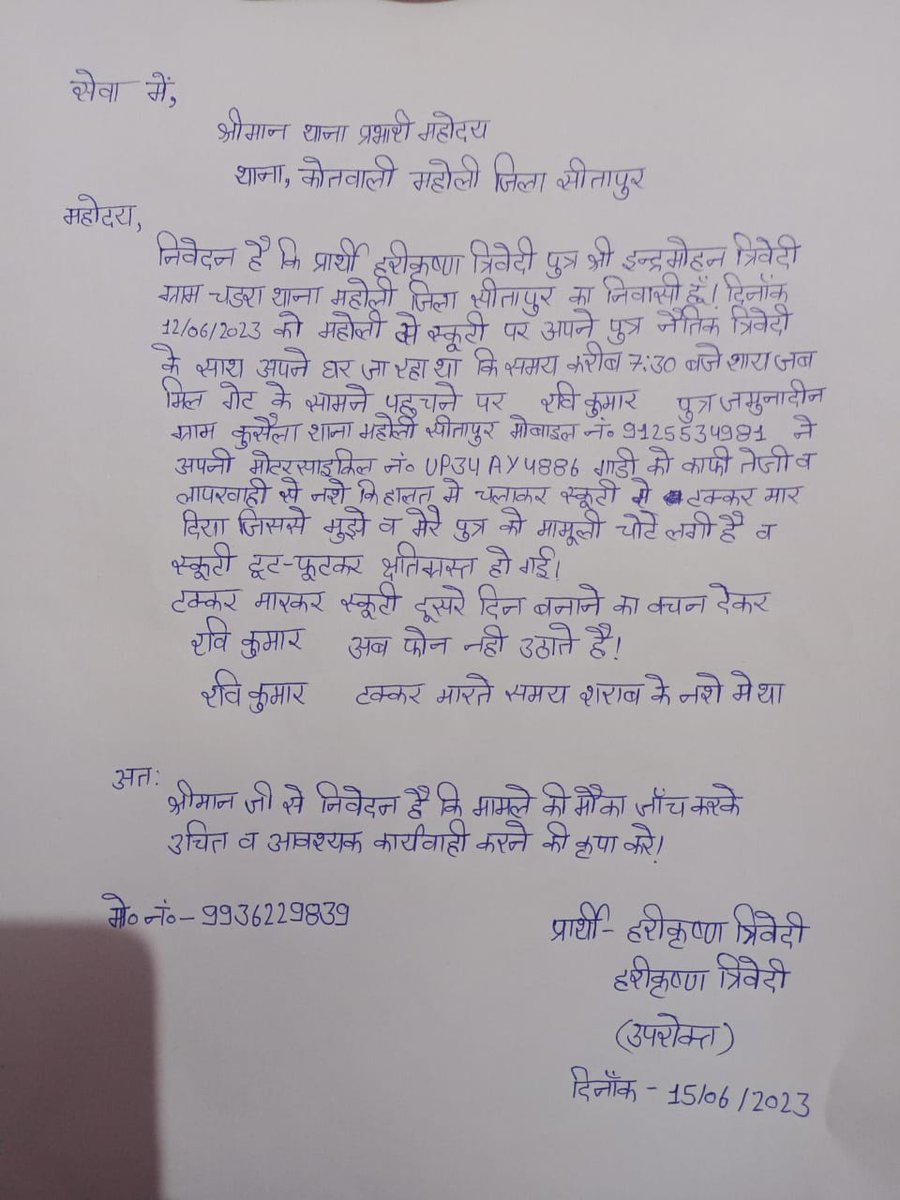 सेवा में,
श्रीमान थाना प्रभारी महोदय
थाना, कोतवाली महोली जिला सीतापुर
महोदय,
निवेदन है कि प्रार्थी हरीकृष्ण त्रिवेदी पुत्र श्री इन्द्रमोहन त्रिवेदी
ग्राम चडरा थाना महोली जिला सीतापुर का निवासी हूँ! दिनाँक
12/06/2023 को महोली से स्कूटी पर अपने पुत्र नैतिक त्रिवेदी
के साथ अपने घर जा रहा था कि समय करीब 7:30 बजे शाय जब
मिल गेट के सामने पहुचने पर रवि कुमार पुत्र जमुनादीन
ग्राम कुसैला थाना महोली सीतापुर मोबाइल नं० 9125534981 ने
अपनी मोटरसाइकिल नं० UP34AY4886 गाडी को काफी तेजी व
लापरवाही से नशे कि हालत मे चलाकर स्कूटी मे टक्कर मार
दिया जिससे मुझे व मेरे पुत्र को मामूली चोटे लगी है व
स्कूटी टूट-फूटकर क्षतिग्रस्त हो गई!
टक्कर मारकर स्कूटी दूसरे दिन बनाने का वचन देकर
रवि कुमार अब फोन नही उठाते है!
रवि कुमार टक्कर मारते समय शराब के नशे मे था
अत:
श्रीमान जी से निवेदन है कि मामले की मौका जाँच करके
उचित व आवश्यक कार्यवाही करने की कृपा करे!
मो० नं०- 9936229839
प्रार्थी- हरीकृष्ण त्रिवेदी
हरीकृष्ण त्रिवेदी
(उपरोक्त)
दिनाँक - 15/06/2023